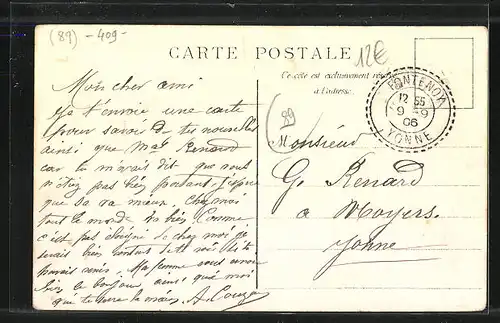 (89) -409-
CARTE POSTALE
12€
Ce côté est exclusivement
à l'adresse.
FONTENOY
12 55
9 -9
06
YONNE
89
Mon cher ami
Je t'envoie une carte
pour savoir de tes nouvelles
ainsi que Mme Renard
car tu m'avais dit que vous
n'étiez pas bien portant. J'espère
que sa va mieux. Chez moi
tout le monde va bien. Comme
c'est pas éloigné de chez moi je
serait bien content de te
ma femme
bien le bonjour ainsi que moi
qui te serre la main. A.
Monsieur
G. Renard
a Noyers.
Yonne